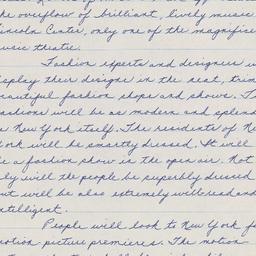 the overflow of brilliant, lively music
Lincoln Center, only one of the magnifice
usic theatre.
Fashion experts and designers w
isplay their designs in the neat, trim
eautiful fashion shops and shows. T
ashions will be as modern and splend
s New York itself. The residents of Ne
ork will be smartly dressed. It will
e a fashion show in the open air. Not
ly will the people be superbly dressed
ut will be also extremely wellread and
ntelligent.
People will look to New York fo
otion picture premiers. The motion